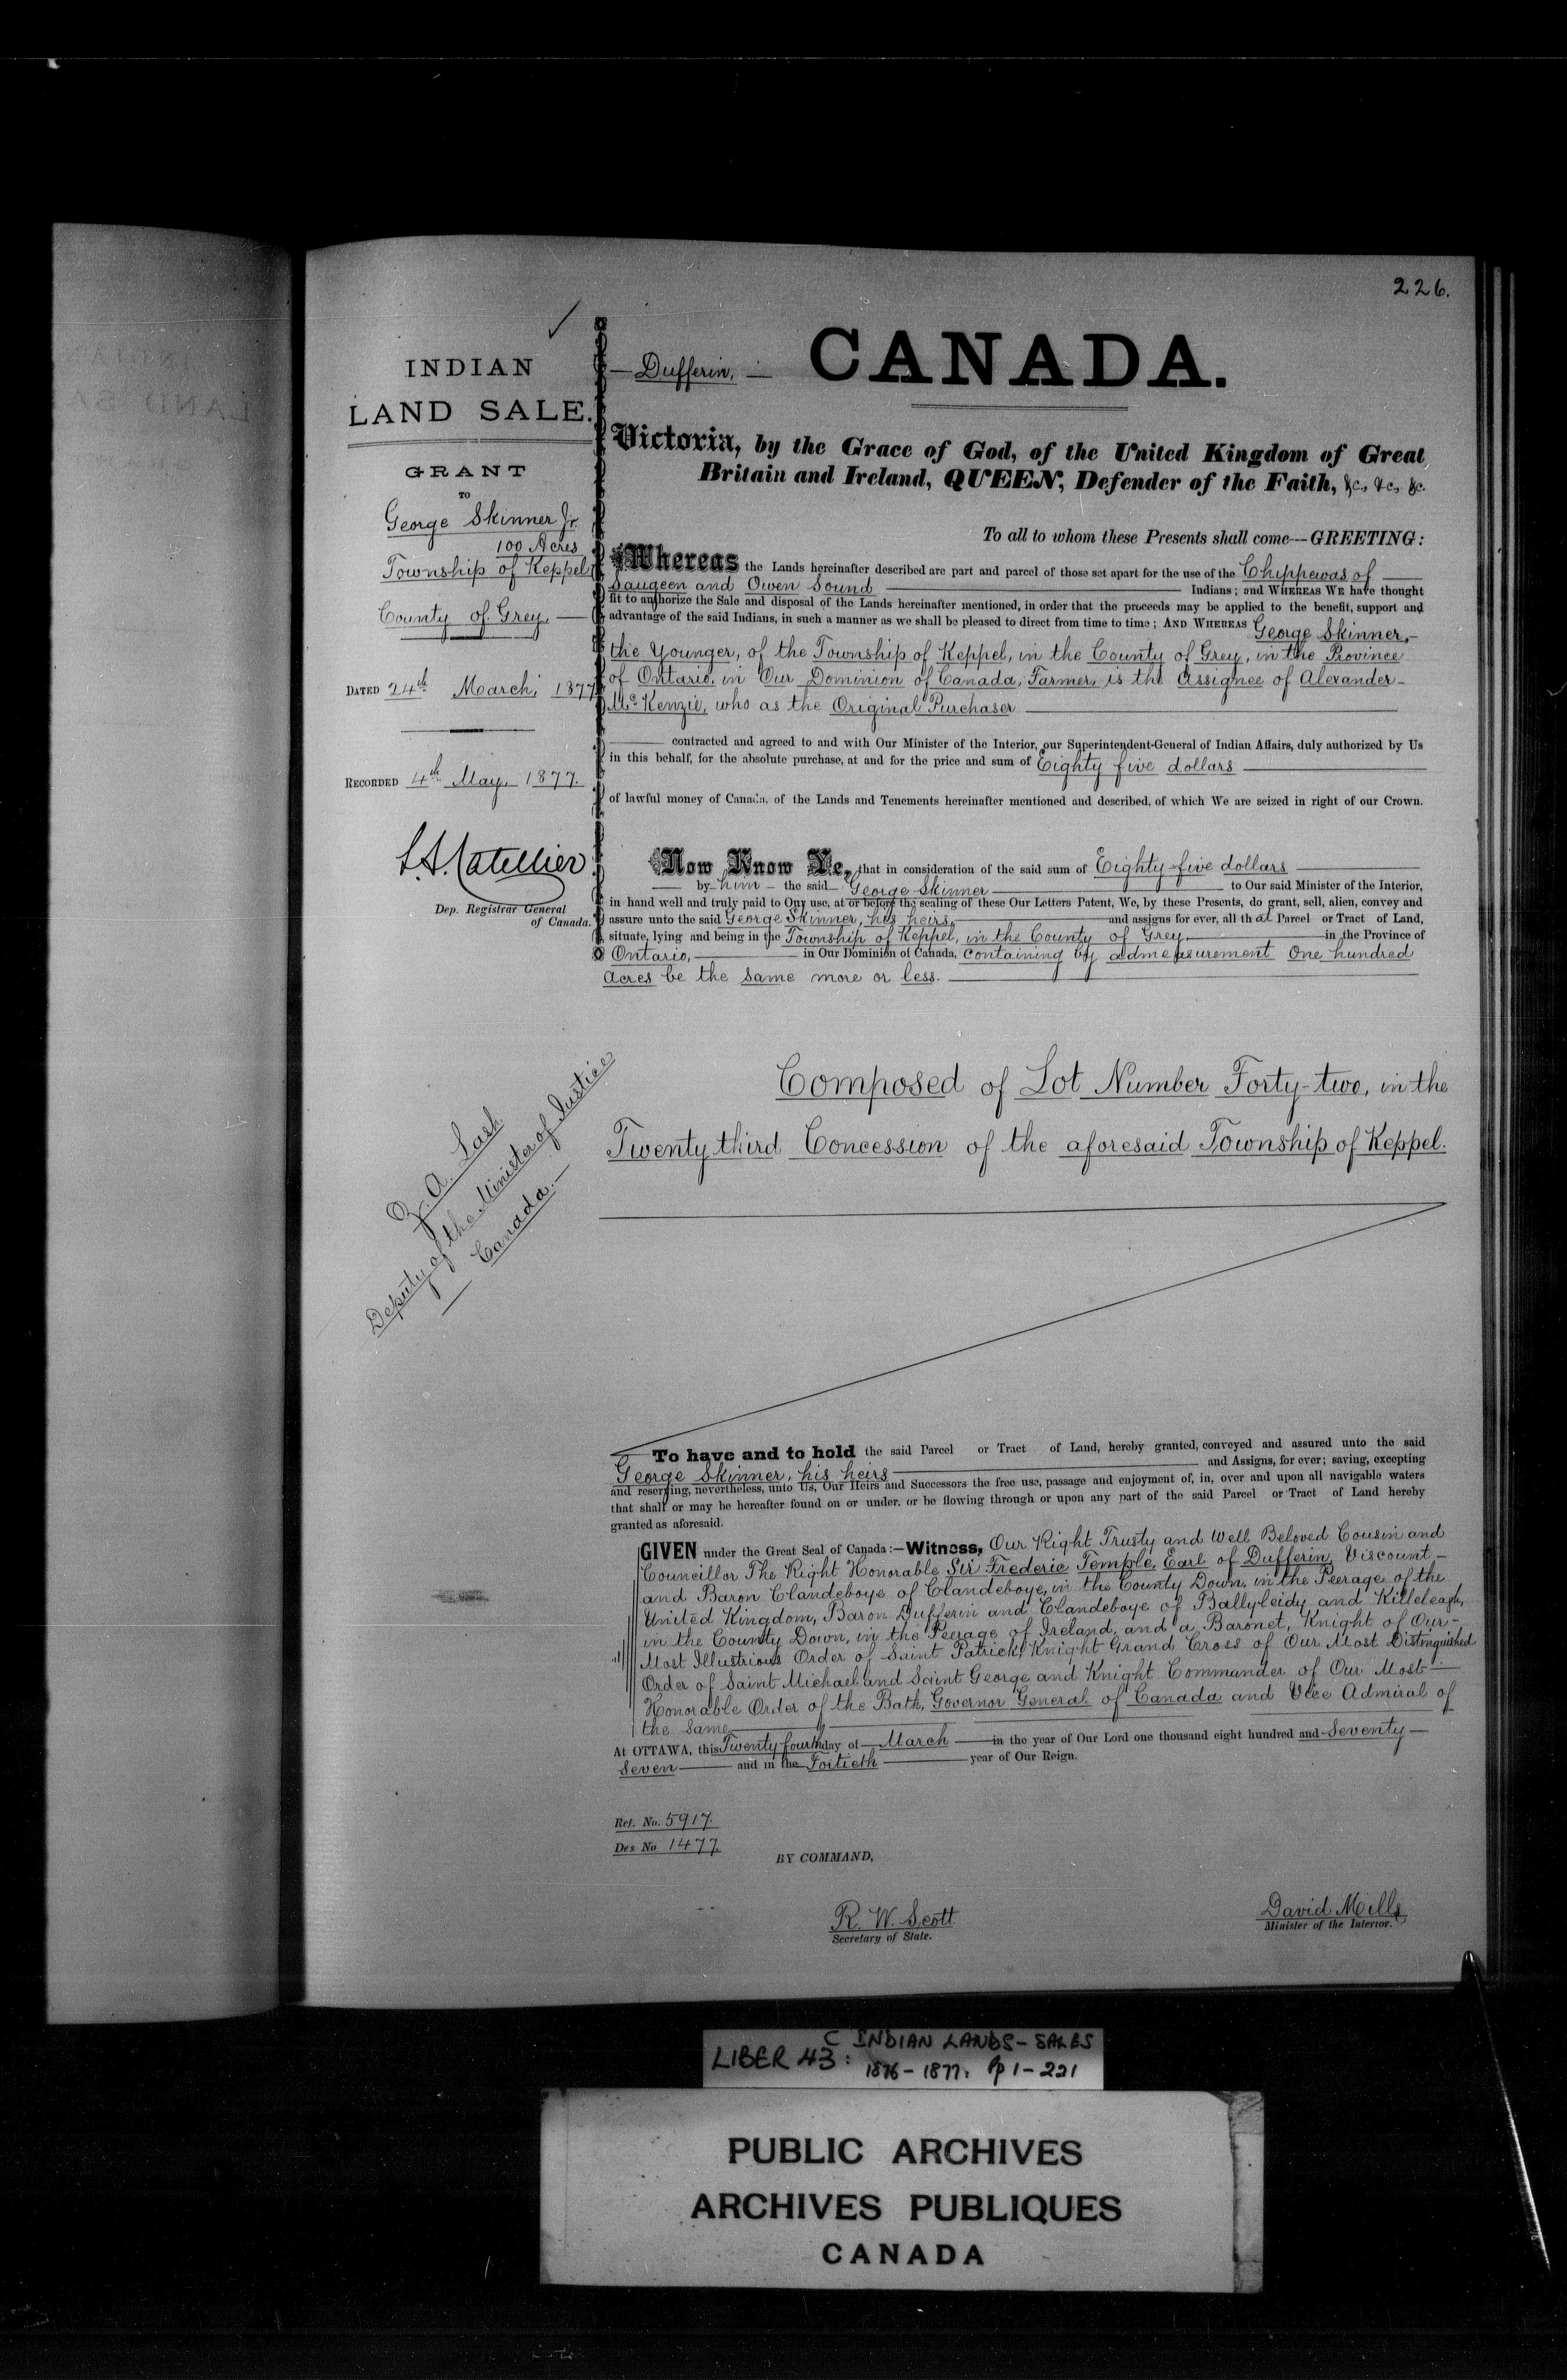 226.
INDIAN
LAND SALE.
GRANT
TO
George Skinner Jr.
100 Acres
Township of Keppel
County of Grey.
DATED 24th March, 1877
RECORDED 4th May, 1877.
Dep. Registrar General
of Canada.
Z. A. Lash
Deputy of the Minister of Justice
Canada.
Dufferin,
CANADA.
Victoria, by the Grace of God, of the United Kingdom of Great
Britain and Ireland, QUEEN, Defender of the Faith, &c., &c., &c.
To all to whom these Presents shall come—GREETING:
Whereas the Lands hereinafter described are part and parcel of those set apart for the use of the Chippewas of
Saugeen and Owen Sound Indians; and WHEREAS WE have thought
fit to authorize the Sale and disposal of the Lands hereinafter mentioned, in order that the proceeds may be applied to the benefit, support and
advantage of the said Indians, in such a manner as we shall be pleased to direct from time to time; AND WHEREAS George Skinner,
the Younger, of the Township of Keppel, in the County of Grey, in the Province
of Ontario, in Our Dominion of Canada, Farmer, is the Assignee of Alexander
McKenzie, who as the Original Purchaser
contracted and agreed to and with Our Minister of the Interior, our Superintendent-General of Indian Affairs, duly authorized by Us
in this behalf, for the absolute purchase, at and for the price and sum of Eighty five dollars
of lawful money of Canada, of the Lands and Tenements hereinafter mentioned and described, of which We are seized in right of our Crown.
Now Know Ye, that in consideration of the said sum of Eighty five dollars
by him the said George Skinner to Our said Minister of the Interior,
in hand well and truly paid to Our use, at or before the sealing of these Our Letters Patent, We, by these Presents, do grant, sell, alien, convey and
assure unto the said George Skinner, his heirs, and assigns for ever, all that Parcel or Tract of Land,
situate, lying and being in the Township of Keppel, in the County of Grey, in the Province of
Ontario, in Our Dominion of Canada, containing by admeasurement One hundred
Acres be the same more or less.
Composed of Lot Number Forty-two, in the
Twenty third Concession of the aforesaid Township of Keppel.
To have and to hold the said Parcel or Tract of Land, hereby granted, conveyed and assured unto the said
George Skinner, his heirs and Assigns, for ever; saving, excepting
and reserving, nevertheless, unto Us, Our Heirs and Successors the free use, passage and enjoyment of, in, over and upon all navigable waters
that shall or may be hereafter found on or under, or be flowing through or upon any part of the said Parcel or Tract of Land hereby
granted as aforesaid.
GIVEN under the Great Seal of Canada:—Witness, Our Right Trusty and Well Beloved Cousin and
Councillor The Right Honorable Sir Frederic Temple, Earl of Dufferin, Viscount
and Baron Clandeboye of Clandeboye, in the County Down, in the Peerage of the
United Kingdom, Baron Dufferin and Clandeboye of Ballyleidy and Killeleagh,
in the County Down, in the Peerage of Ireland, and a Baronet, Knight of Our
Most Illustrious Order of Saint Patrick, Knight Grand Cross of Our Most Distinguished
Order of Saint Michael and Saint George and Knight Commander of Our Most
Honorable Order of the Bath, Governor General of Canada and Vice Admiral of
the same
At OTTAWA, this Twenty fourth day of March in the year of Our Lord one thousand eight hundred and Seventy
Seven and in the Fortieth year of Our Reign.
Ref. No. 5917.
Des No 1477.
BY COMMAND,
R. W. Scott
Secretary of State.
David Mills
Minister of the Interior.
LIBER 43: C INDIAN LANDS - SALES
1876 - 1877. pp 1 - 221
PUBLIC ARCHIVES
ARCHIVES PUBLIQUES
CANADA